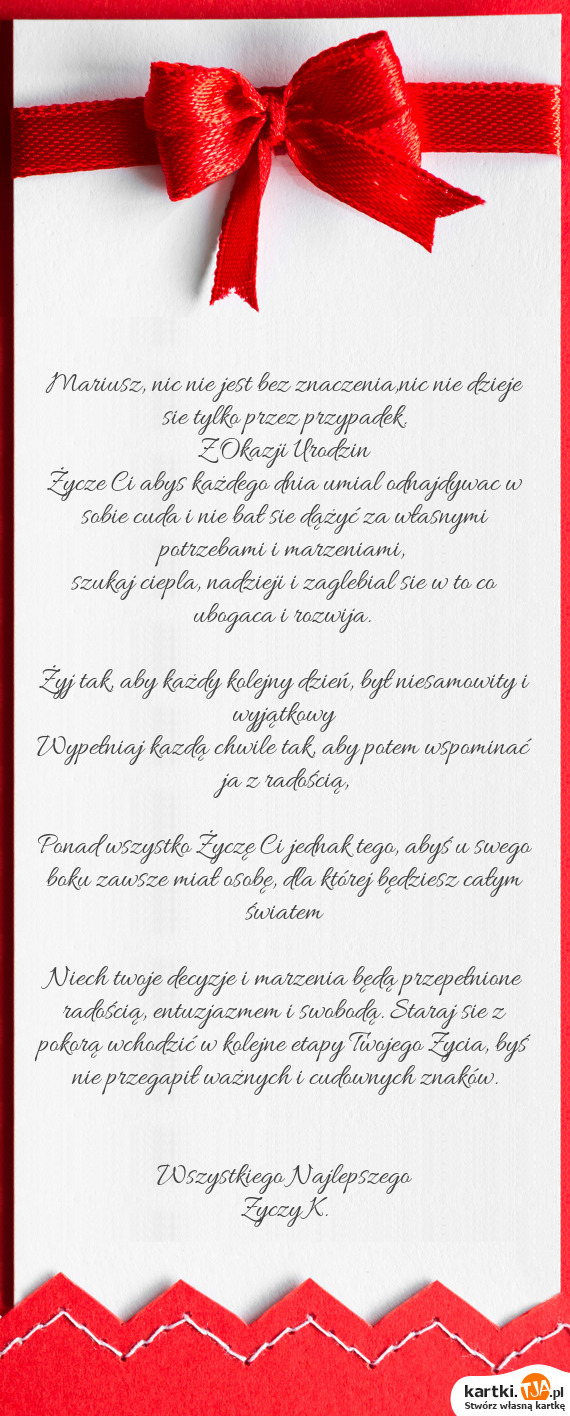 Mariusz, nic nie jest bez znaczenia,nic nie dzieje
sie tylko przez przypadek.
Z Okazji Urodzin
Życze Ci abys każdego dnia umial odnajdywac w
sobie cuda i nie bał sie dążyć za własnymi
potrzebami i marzeniami,
szukaj ciepla, nadzieji i zaglebial sie w to co
ubogaca i rozwija.
Żyj tak, aby każdy kolejny dzień, był niesamowity i
wyjątkowy
Wypełniaj kazdą chwile tak, aby potem wspominać
ja z radością,
Ponad wszystko Życzę Ci jednak tego, abyś u swego
boku zawsze miał osobę, dla której będziesz całym
światem
Niech twoje decyzje i marzenia będą przepełnione
radością, entuzjazmem i swobodą. Staraj sie z
pokorą wchodzić w kolejne etapy Twojego Zycia, byś
nie przegapił ważnych i cudownych znaków.
Wszystkiego Najlepszego
Zyczy K.
kartki.TJA.pl
Stwórz własną kartkę